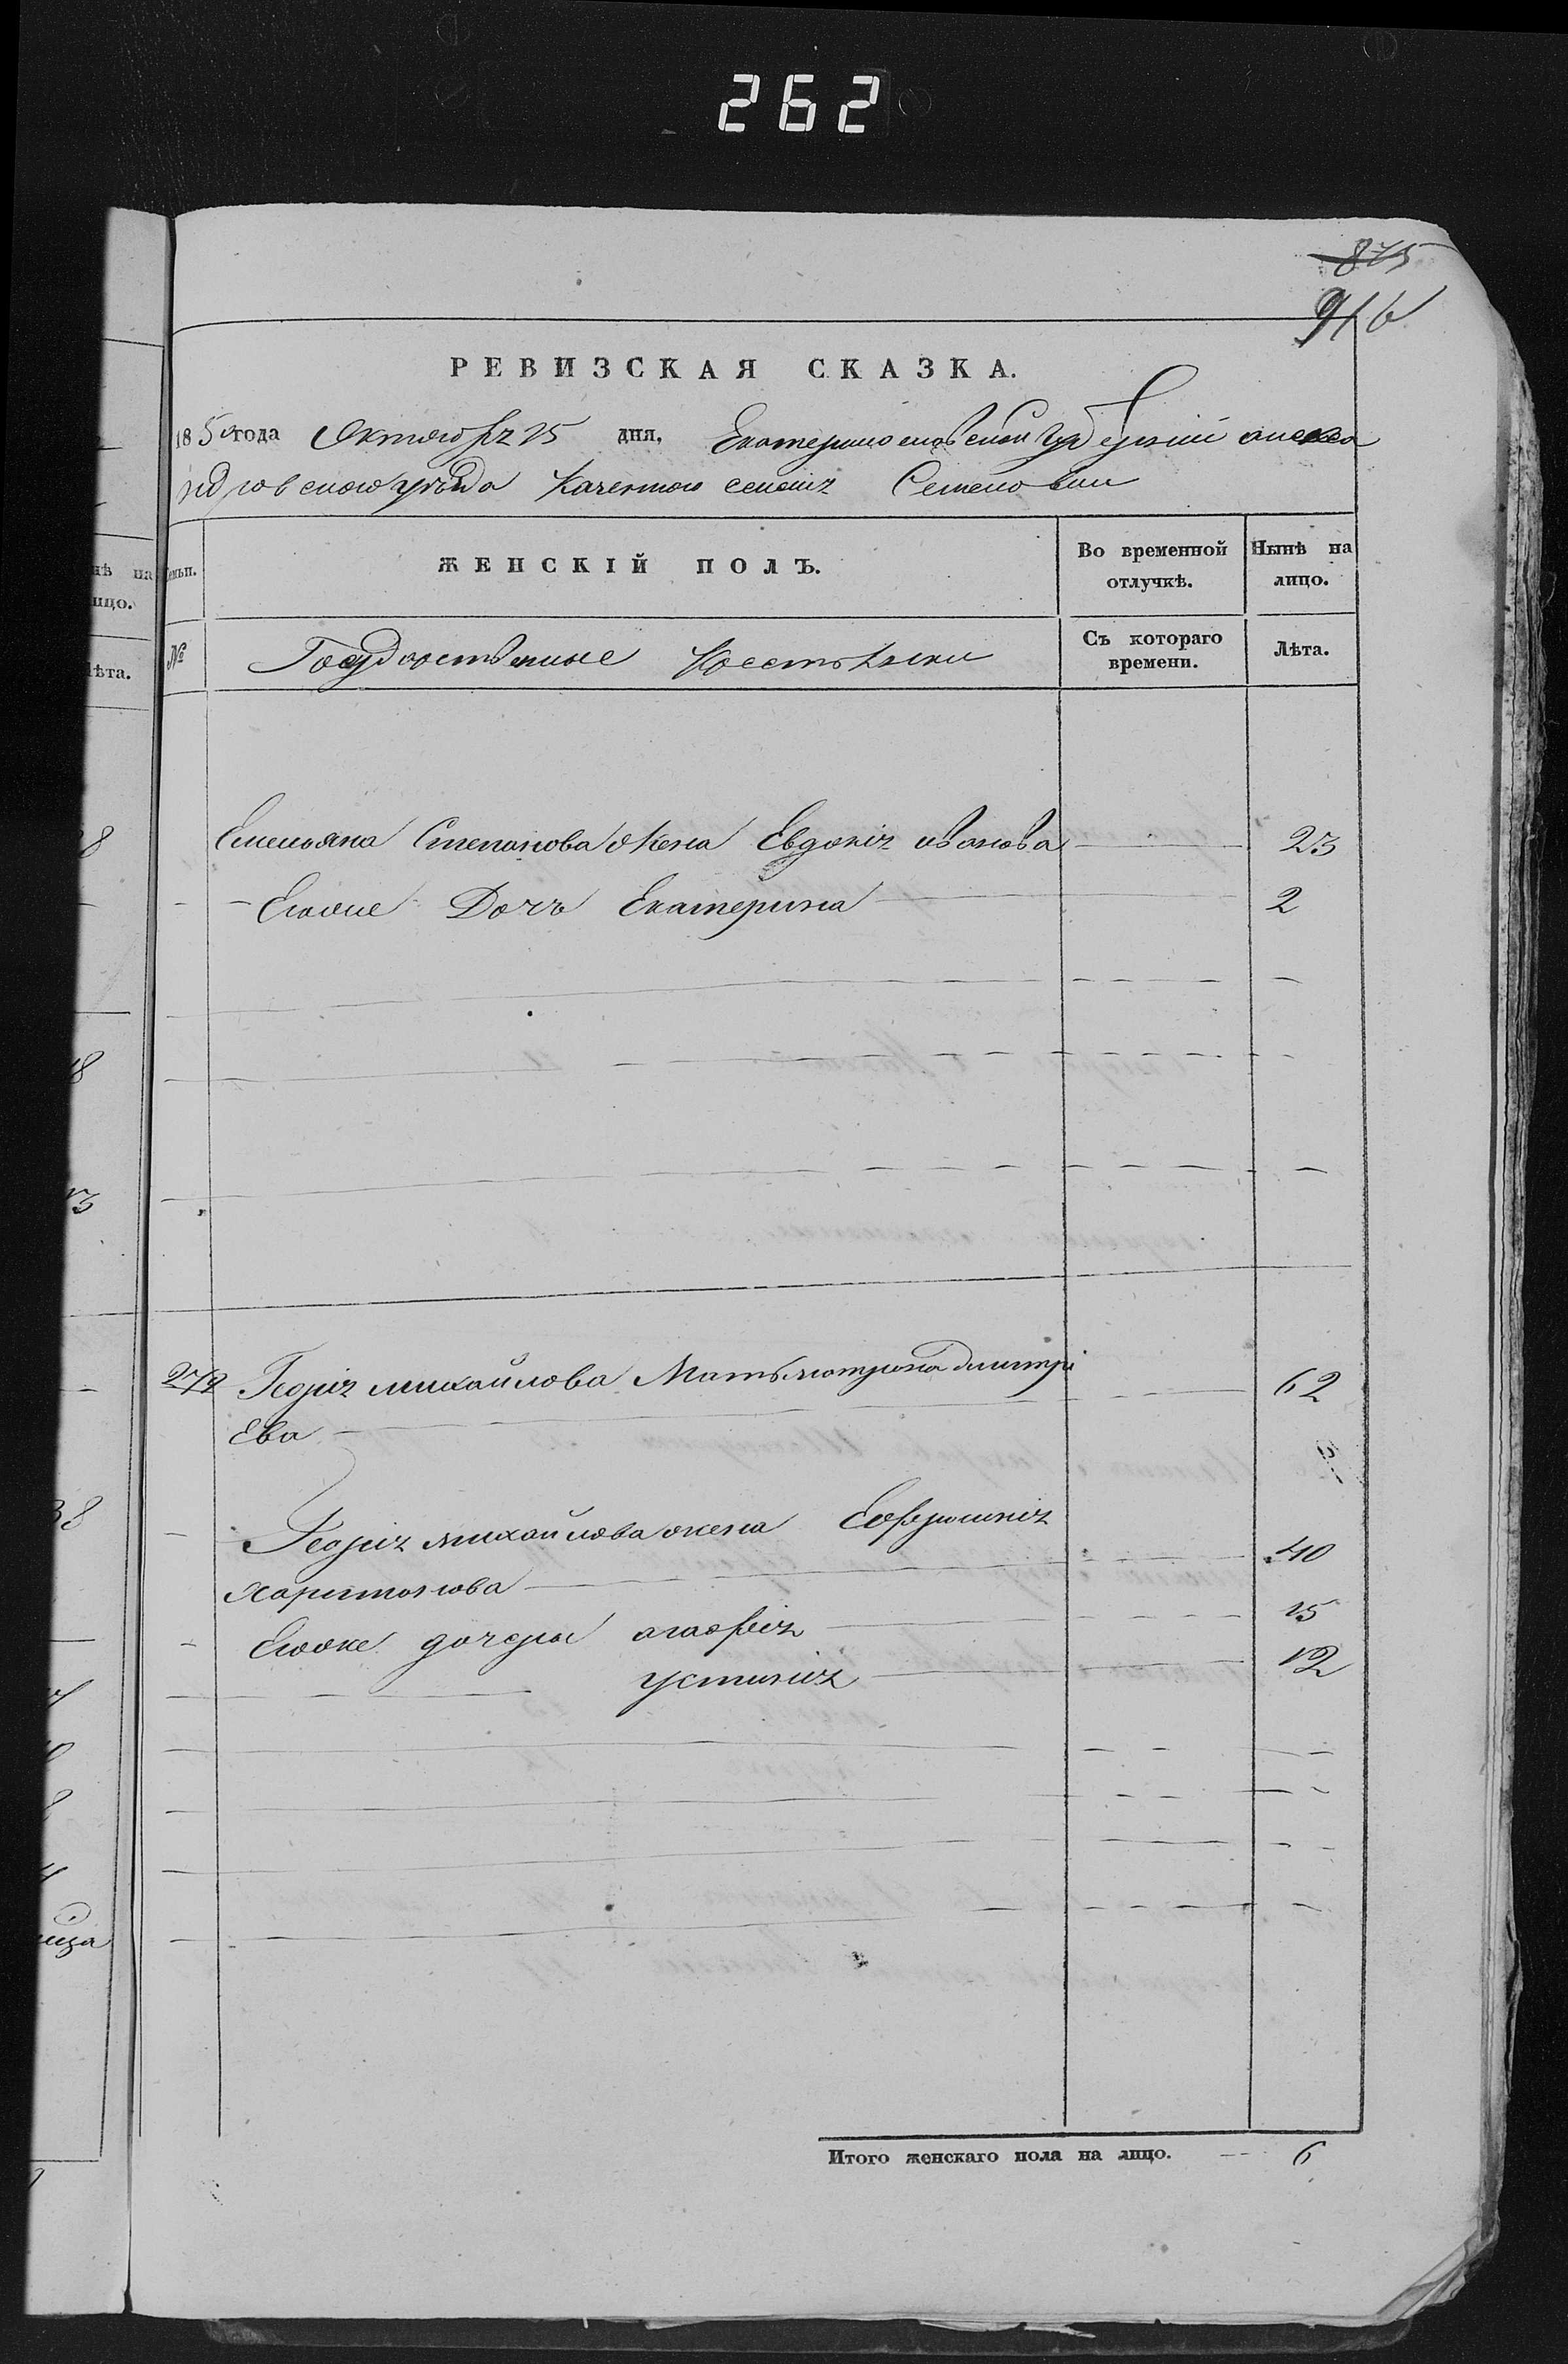 262
875
916
РЕВИЗСКАЯ СКАЗКА.
1850 года Октября 25 дня, Екатеринославской Губерніи алекса
ндровского уѣзда Казенного селенія Семеновки
ЖЕНСКІЙ ПОЛЪ.
Во временной отлучкѣ.
Нынѣ на лицо.
№
Государственные Крестьянки
Съ котораго времени.
Лѣта.
Емельяна Степанова Жена Евдокія иванова 23
Егоже Дочь Екатерина 2
272 Георгія михайлова Мать матрона дмитрі 62
Ева
Георгія михайлова жена Ефросинія
харитонова 40
Егоже дочеры агафія 15
устинія 12
Итого женскаго пола на лицо. 6